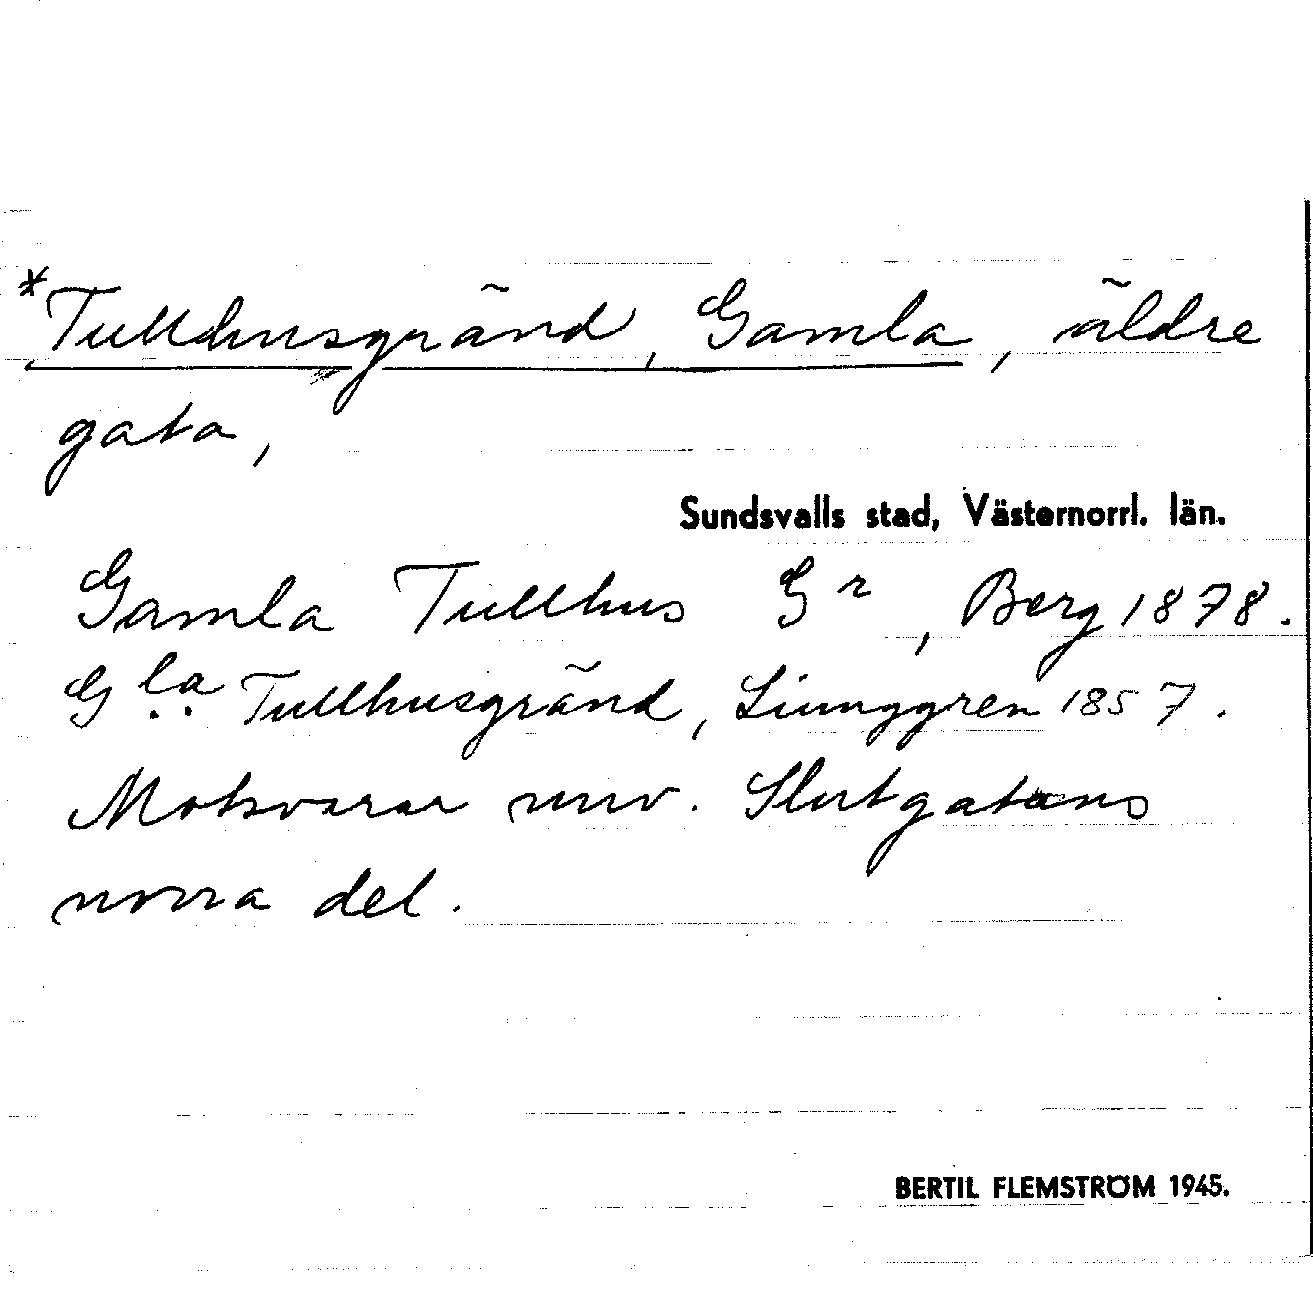 *Tullhusgränd, Gamla, äldre
gata,
Sundsvalls stad, Västernorrl. län.
Gamla Tullhus Gr, Berg 1878.
Gla Tullhusgränd, Liunggren 1857.
Motsvarar nuv. Slutgatans
norra del.
BERTIL FLEMSTRÖM 1945.